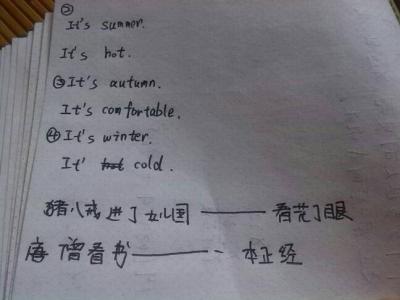 ②
It's summer.
It's hot.
③It's autumn.
It's comfortable.
④It's winter.
It' cold.
猪八戒进了女儿国——看花了眼
唐僧看书——一本正经